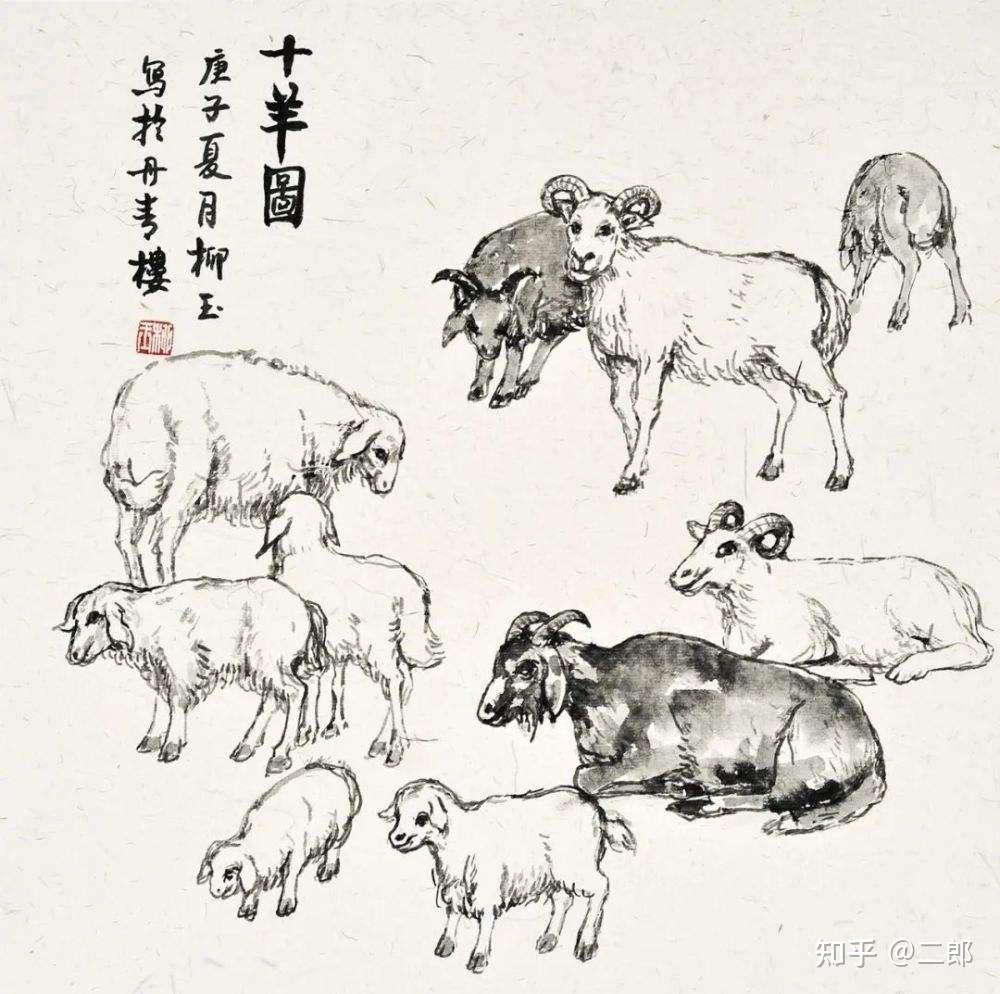 十羊圖
庚子夏月柳玉
寫於丹青樓
柳玉
知乎 @二郎